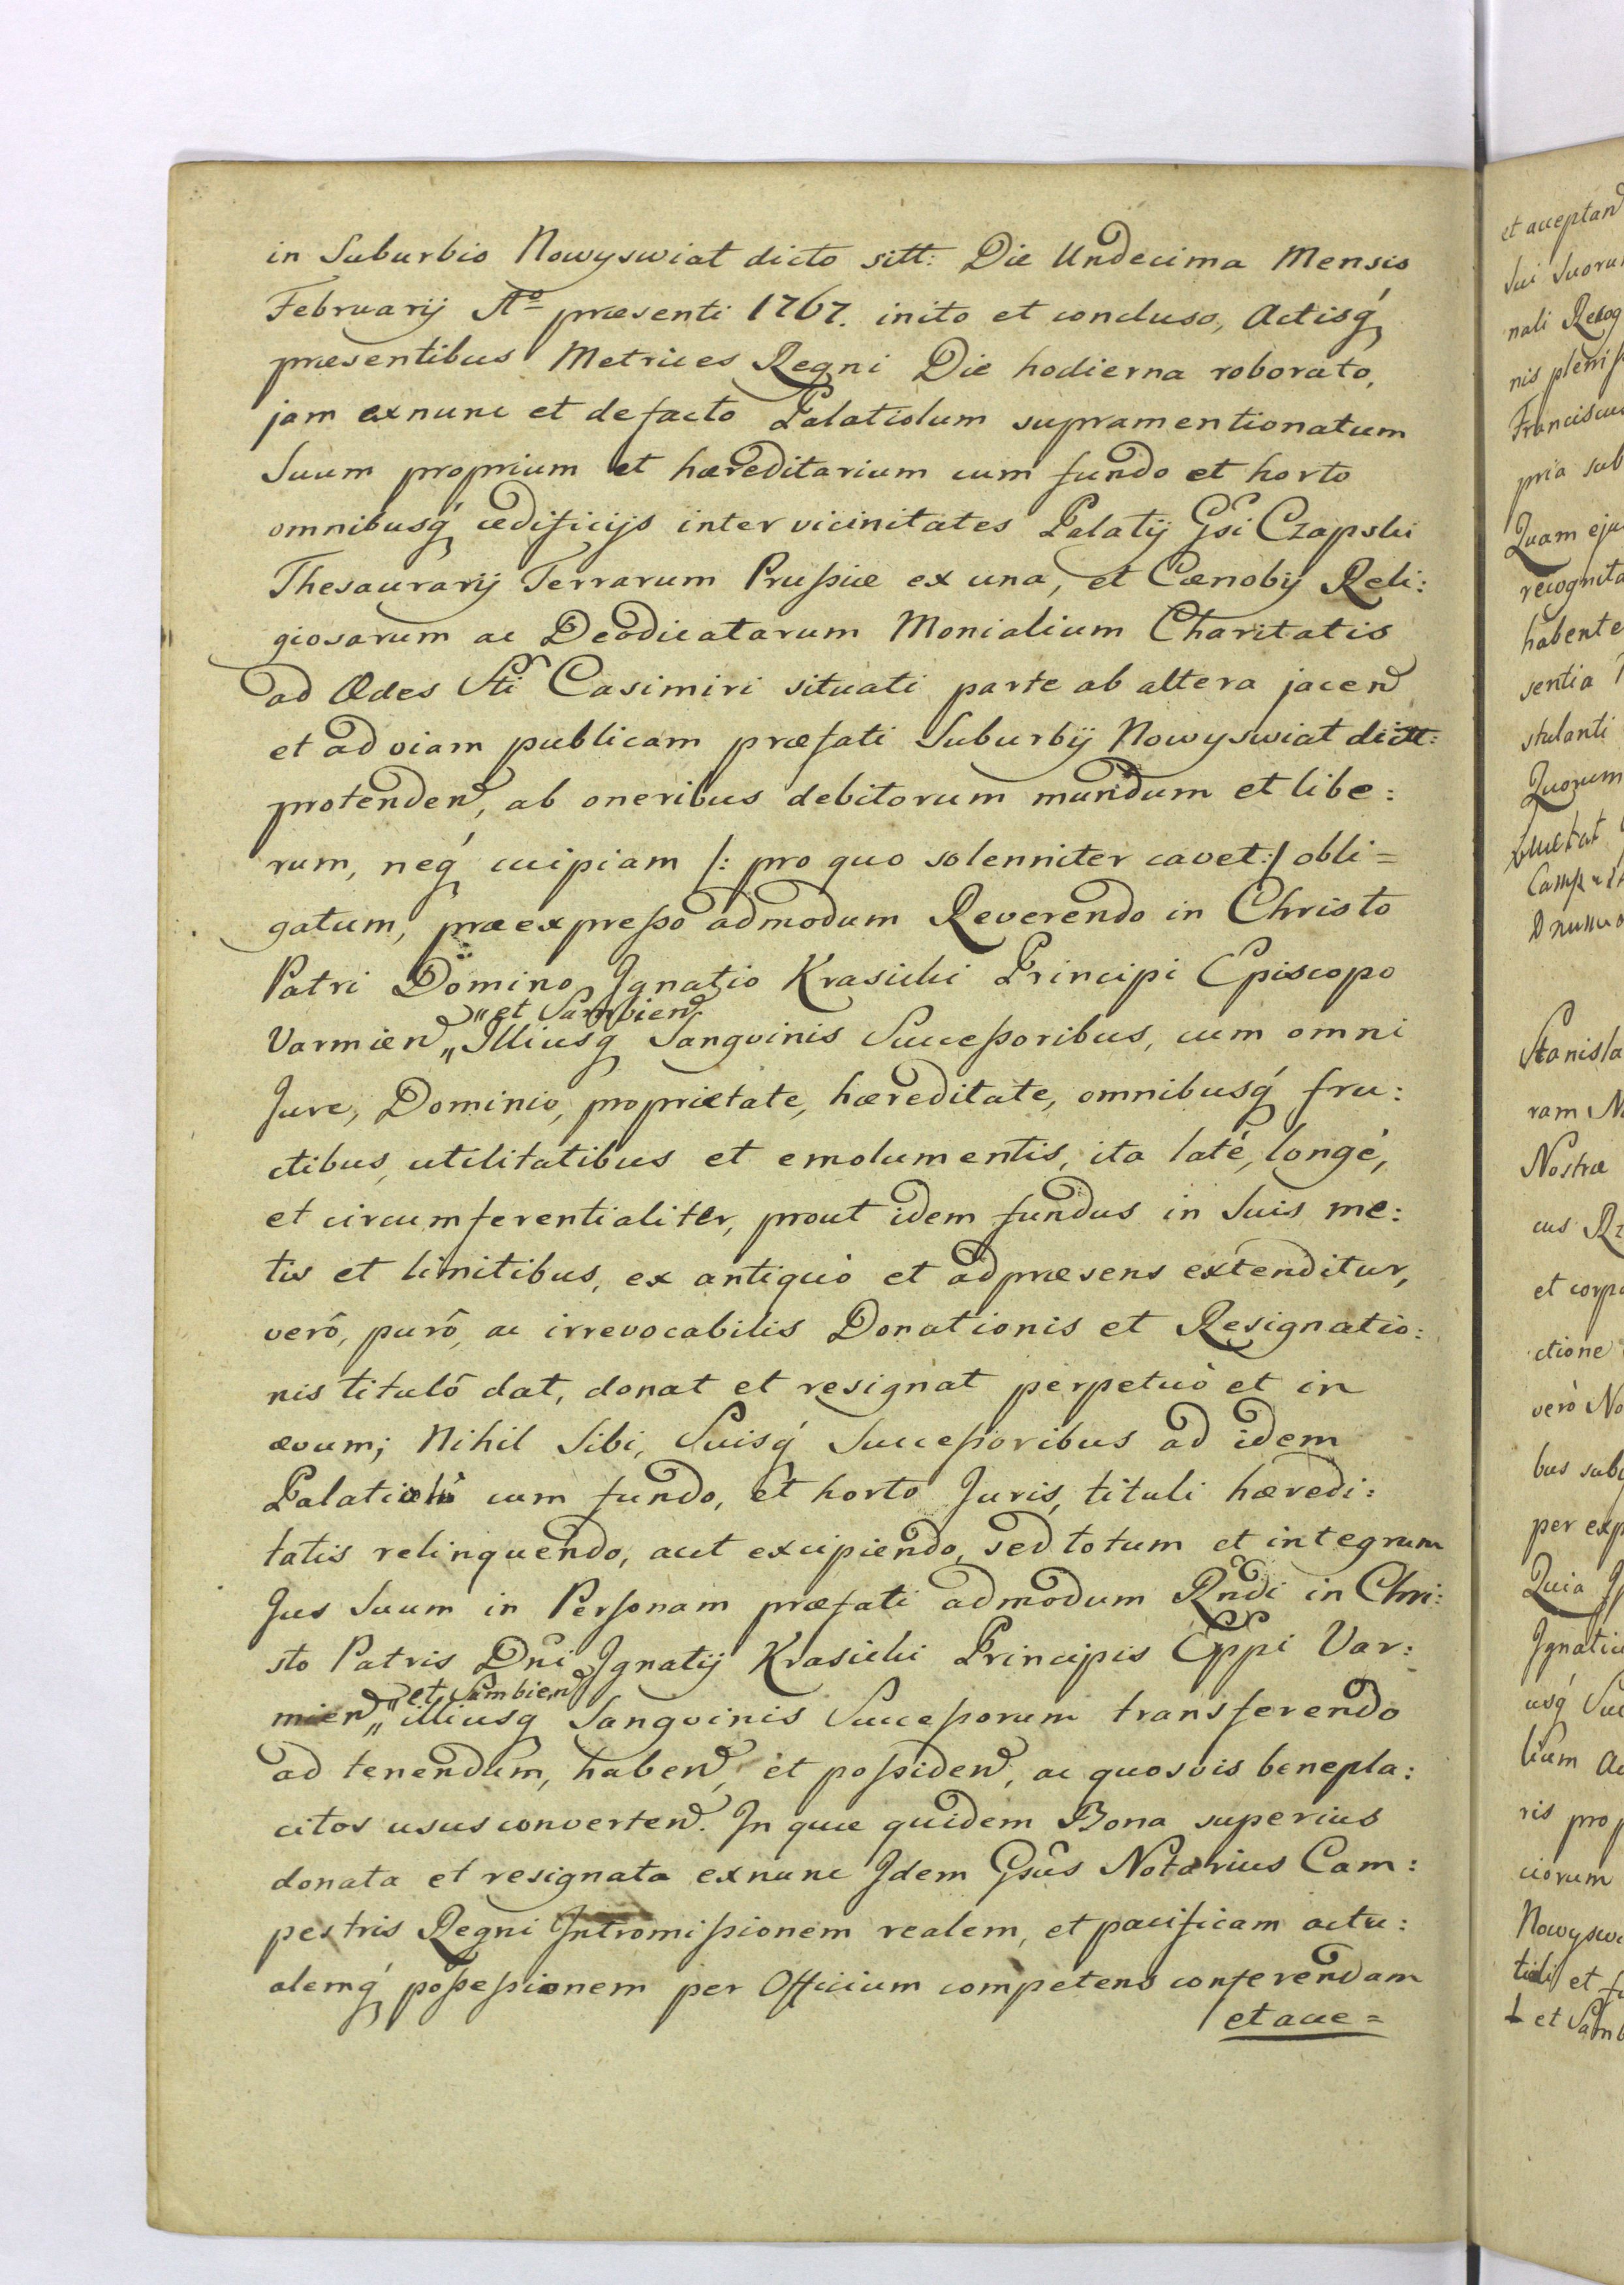 in Suburbio Nowyswiat dicto sitt: Die Undecima Mensis
Februarij Aº praesenti 1767. inito et concluso, Actisq́
praesentibus Metrices Regni Die hodierna roborato,
jam exnunc et defacto Palatiolum supramentionatum
Suum proprium et haereditarium cum fundo et horto
omnibusq́ aedificijs inter vicinitates Palatij Gsi Czapski
Thesaurarij Terrarum Prussiae ex una, et Caenobij Reli:
giosarum ac Deodicatarum Monialium Charitatis
ad Ædes Sti Casimiri situati parte ab altera jacen
et ad viam publicam praefati Suburbij Nowyswiat dictt:
protenden, ab oneribus debitorum mundum et libe:
rum, neq́ cuipiam /: pro quo solenniter cavet :/ obli=
gatum, praeexpresso admodum Reverendo in Christo
Patri Domino Ignatio Krasicki Principi Episcopo
„et Sambien
Varmien „ Illiusq́ Sangvinis Successoribus, cum omni
Jure, Dominio, proprietate, haereditate, omnibusq́ fru:
ctibus, utilitatibus et emolumentis, ita laté, longé,
et circumferentialiter, prout idem fundus in Suis me:
tis et limitibus, ex antiquò et adpraesens extenditur,
verô, purô, ac irrevocabilis Donationis et Resignatio:
nis titulô dat, donat et resignat perpetuò et in
aevum; Nihil Sibi, Suisq́ Successoribus ad idem
Palatiolũ cum fundo, et horto Juris, tituli haeredi:
tatis relinquendo, aut excipiendo, sed totum et integrum
Jus Suum in Personam praefati admodum Rndi in Chri:
sto Patris Dni Ignatij Krasicki Principis Eppi Var:
„et Sambien
mien „ illiusq Sangvinis Successorum transferendo
ad tenendum, haben, et possiden, ac quosvis benepla:
citos usus converten. In quae quidem Bona superius
donata et resignata exnunc Idem Gsus Notarius Cam:
pestris Regni Intromissionem realem, et pacificam actu:
alemq́ possessionem per Officium competens conferendam
et acce=
et acceptan
Sui Suoru
nali Recog
nis pleniss
Franciscus
pria sub
Quam eju
recognita
habente
sentia
stulanti
Quorum
Camp
Stanisla
ram N
Nostrae
cus Rz
et corpo
ctione
verò No
bus subs
per exp
Quia
Ignatiu
usq́ Suc
lium ac
ris prop
ciorum
Nowyswi
et f
et Samb